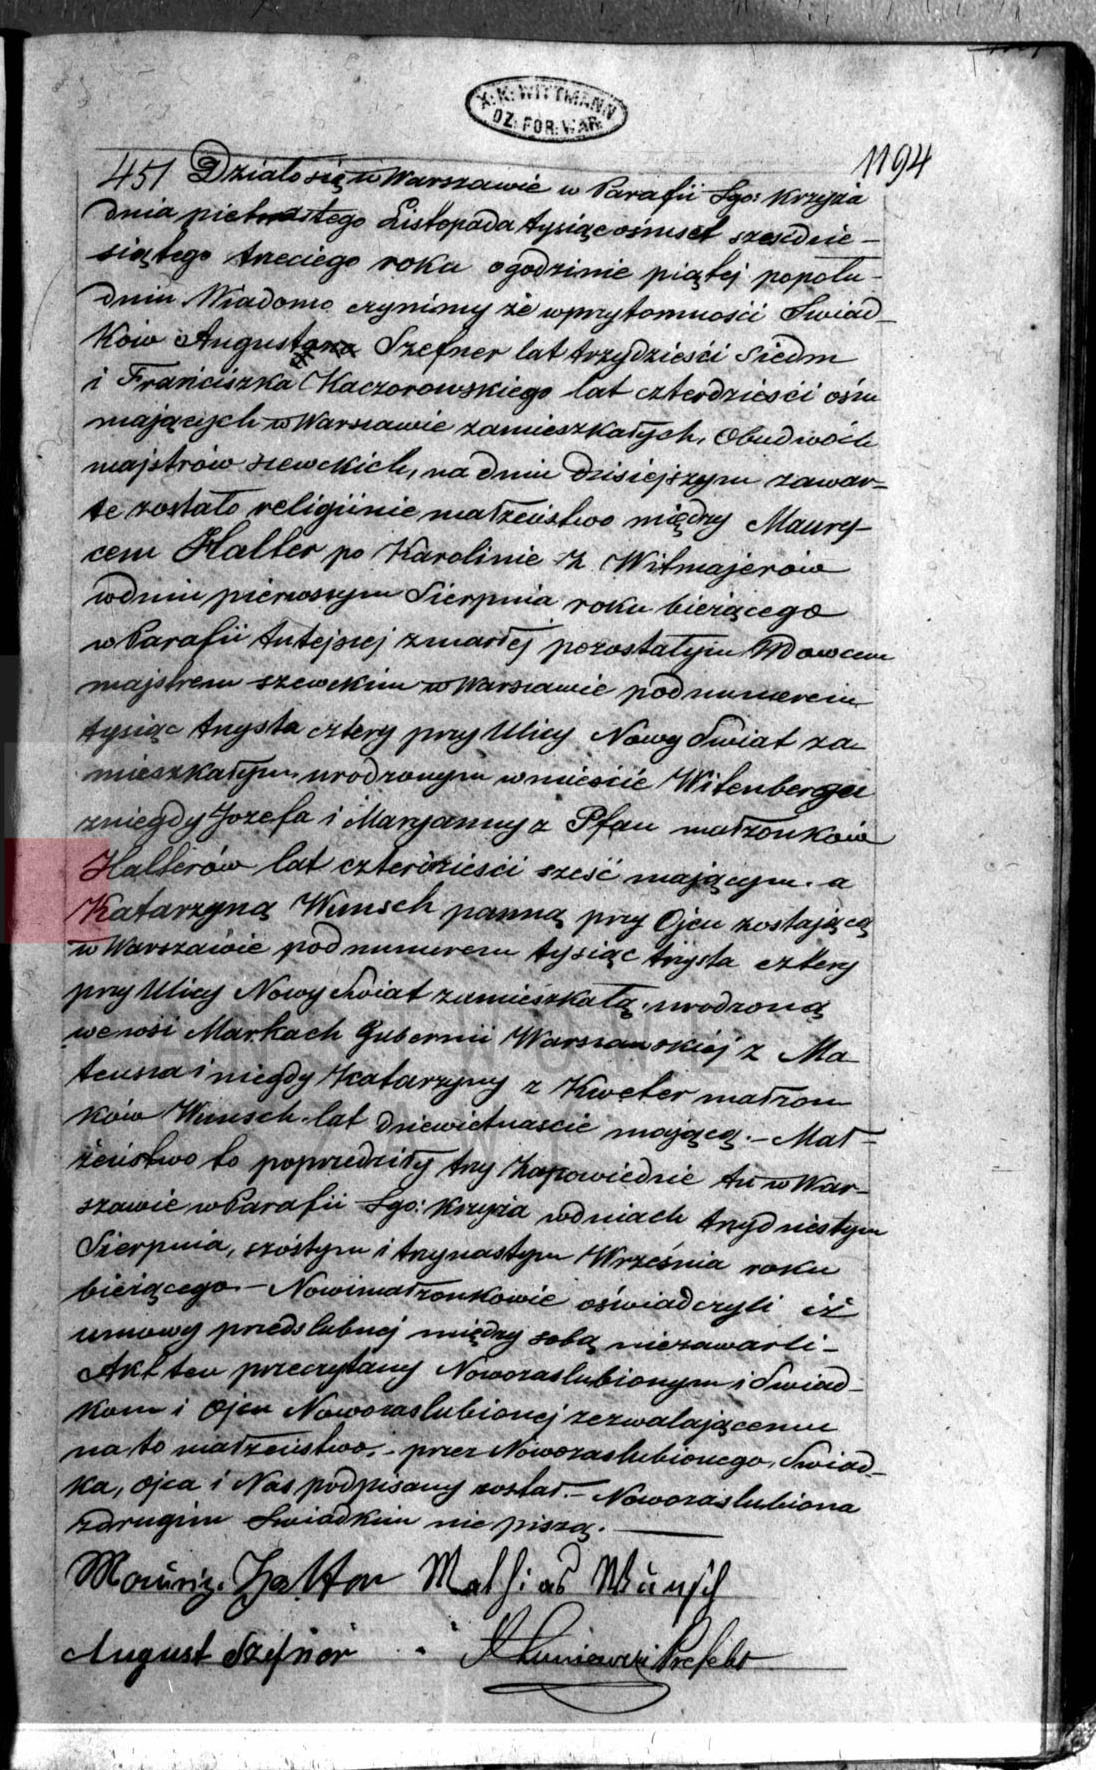 X. K. WITTMANN
DZ. FOR. WAR.
1194
451 Działo się w Warszawie w Parafii Sgo: Krzyża
dnia piętnastego Listopada tysiąc ośmset sześćdzie-
siątego trzeciego roku o godzinie piątej popołu-
dniu Wiadomo czynimy że w przytomności Świad-
ków Augusta Szefner lat trzydzieści siedm
i Franciszka Kaczorowskiego lat czterdzieści ośm
mających w Warszawie zamieszkałych, Obudwóch
majstrów szewckich, na dniu dzisiejszym zawar-
te zostało religijnie małżeństwo między Maury-
cem Halter po Karolinie z Witmajerów
w dniu pierwszym Sierpnia roku bieżącego
w Parafii tutejszej zmarłej pozostałym Wdowcem
majstrem szewckim w Warszawie pod numerem
tysiąc trzysta cztery przy Ulicy Nowy Świat za-
mieszkałym, urodzonym w mieście Witenberger
z niegdy Jozefa i Maryanny z Pfau małżonków
Halterów lat czterdzieści sześć mającym. a
Katarzyną Wunsch panną przy Ojcu zostającą
w Warszawie pod numerem tysiąc trzysta cztery
przy Ulicy Nowy Świat zamieszkałą, urodzoną
we wsi Markach Gubernii Warszawskiej z Ma
teusza i niegdy Katarzyny z Kweter małżon
ków Wunsch lat dziewiętnaście mającą. – Mał-
żeństwo to poprzedziły trzy Zapowiedzie tu w War-
szawie w Parafii Sgo: Krzyża w dniach trzydziestym
Sierpnia, szóstym i trzynastym Września roku
bieżącego – Nowi małżonkowie oświadczyli iż
umowy przedślubnej między sobą niezawarli –
Akt ten przeczytany Nowozaslubionym i Świad-
kom i Ojcu Nowozaslubionej zezwalającemu
na to małżeństwo, – przez Nowozaslubionego, Świad-
ka, Ojca i Nas podpisany został. – Nowozaslubiona
z drugim Świadkiem nie piszą. –
Mauriz. Halter Mathias Wünsch
August Szefner Prefekt